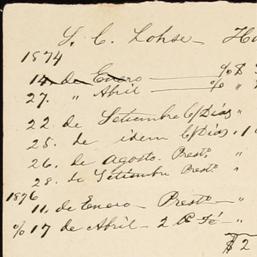 S. C. Lohse - Ha
1874
14. de Enero - %$ 3
27. " Abril - % "
22 de Setiembre c/Dias "
25. de idem c/Dias, " 1
26. de agosto. Presto "
28. de Setiembre Presto "
1876
11. de Enero - Presto "
% 17 de Abril - 2 Fé "
$ 2